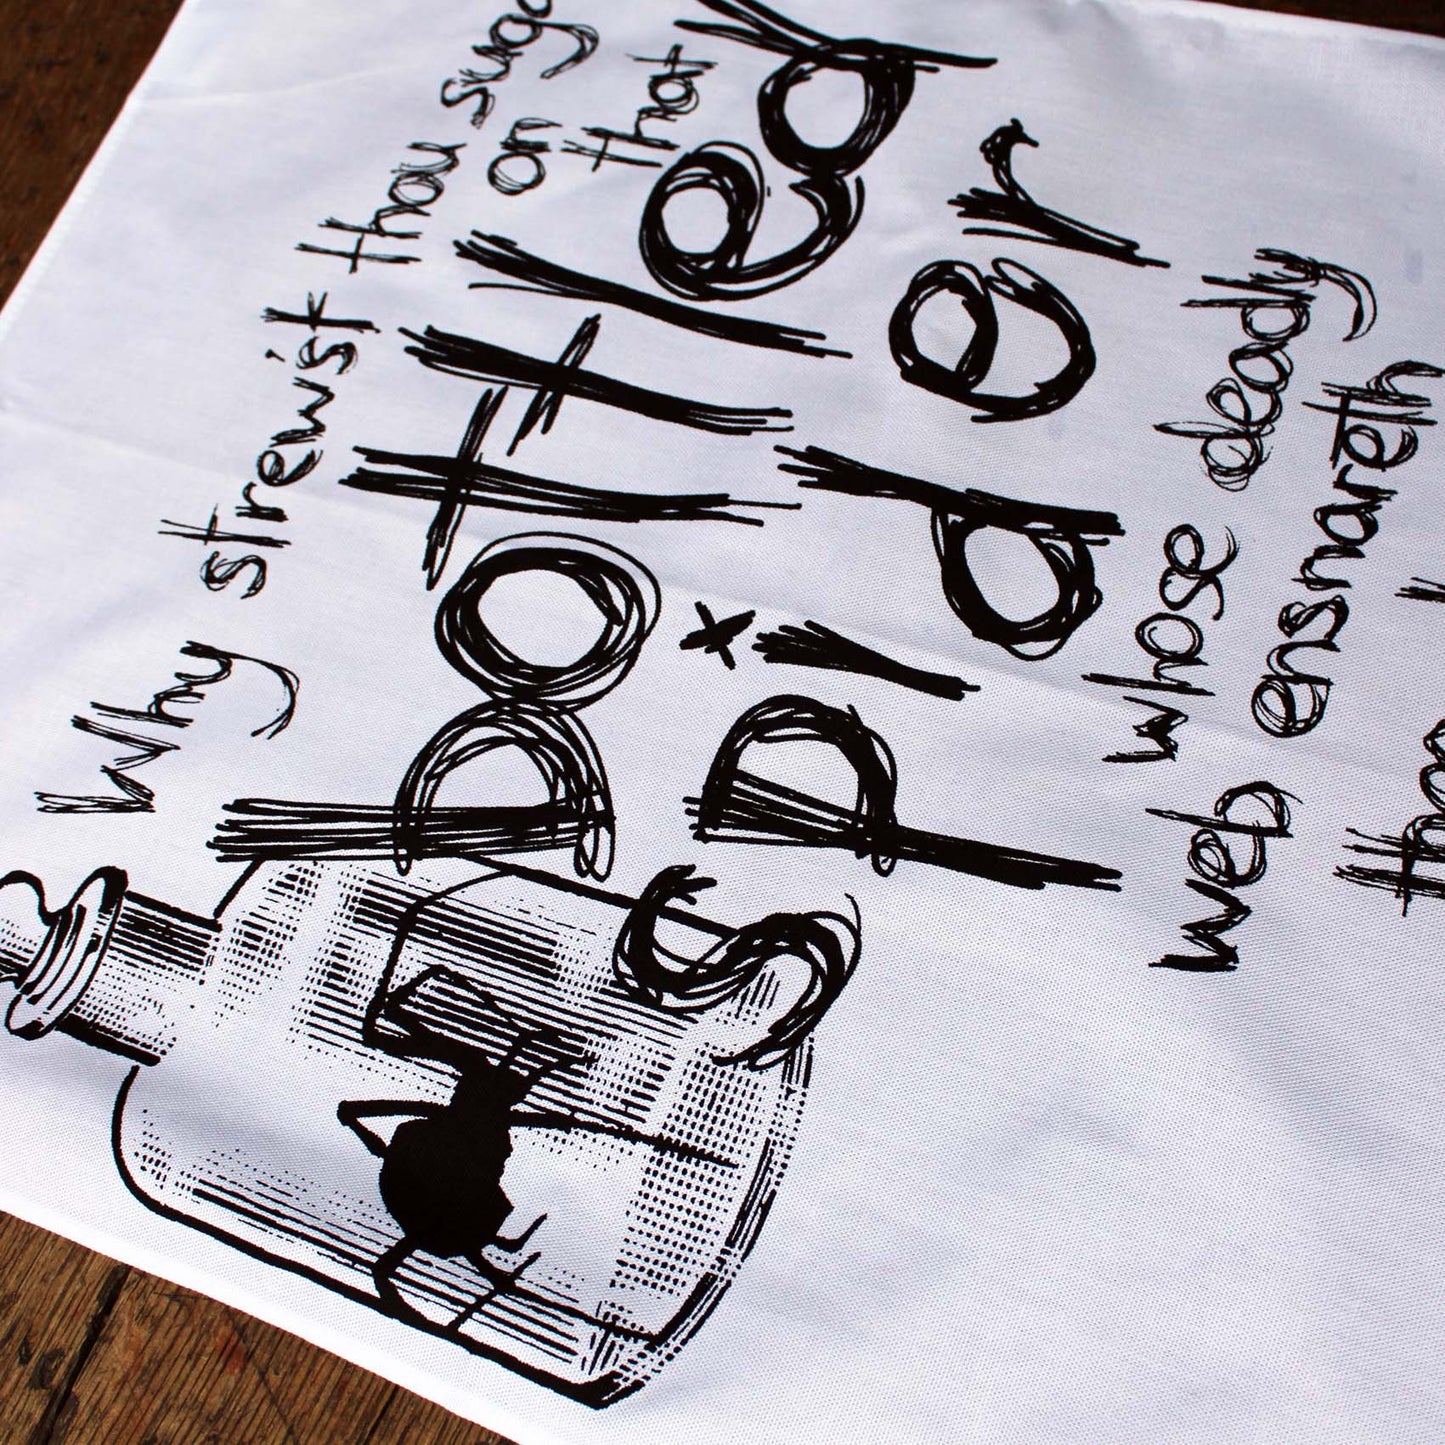 Why strew'st thou suga
on
that
bottled
spider
whose deadly
web ensnareth